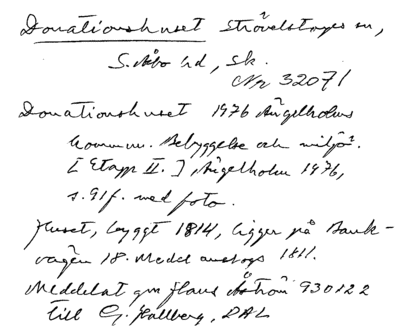 Donationshuset Strövelstorps sn,
S. Åsbo hd, Sk.
Nr 32071
Donationshuset 1976 Ängelholms
kommun. Bebyggelse och miljö.
[Etapp II.], Ängelholm 1976,
s. 91f. med foto.
Huset, byggt 1814, ligger på Bank-
vägen 18. Medel anslogs 1811.
Meddelat gm Hans Åström 930122
till G. Hallberg, DAL